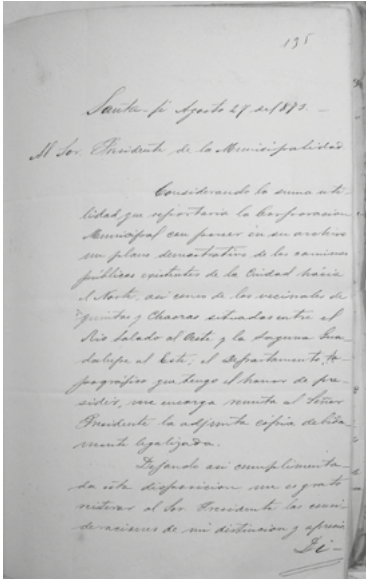 135
Santa-fé Agosto 27 de 1873.
Al Sor. Presidente de la Municipalidad
Considerando la suma uti-
lidad que reportaria la Corporacion
Municipal con poseer en su archivo
un plano demostrativo de los caminos
públicos existentes de la Ciudad hácia
el Norte, asi como de los vecinales de
quintas y Chacras situadas entre el
Rio Salado al Oeste y la Laguna Gua-
dalupe al Este, el Departamento To-
pográfico que tengo el honor de pre-
sidir, me encarga remita al Señor
Presidente la adjunta cópia debida-
mente legalizada.
Dejando asi cumplimenta-
da esta disposicion me es grato
reiterar al Sor. Presidente las consi-
deraciones de mi distincion y aprecio
Di-